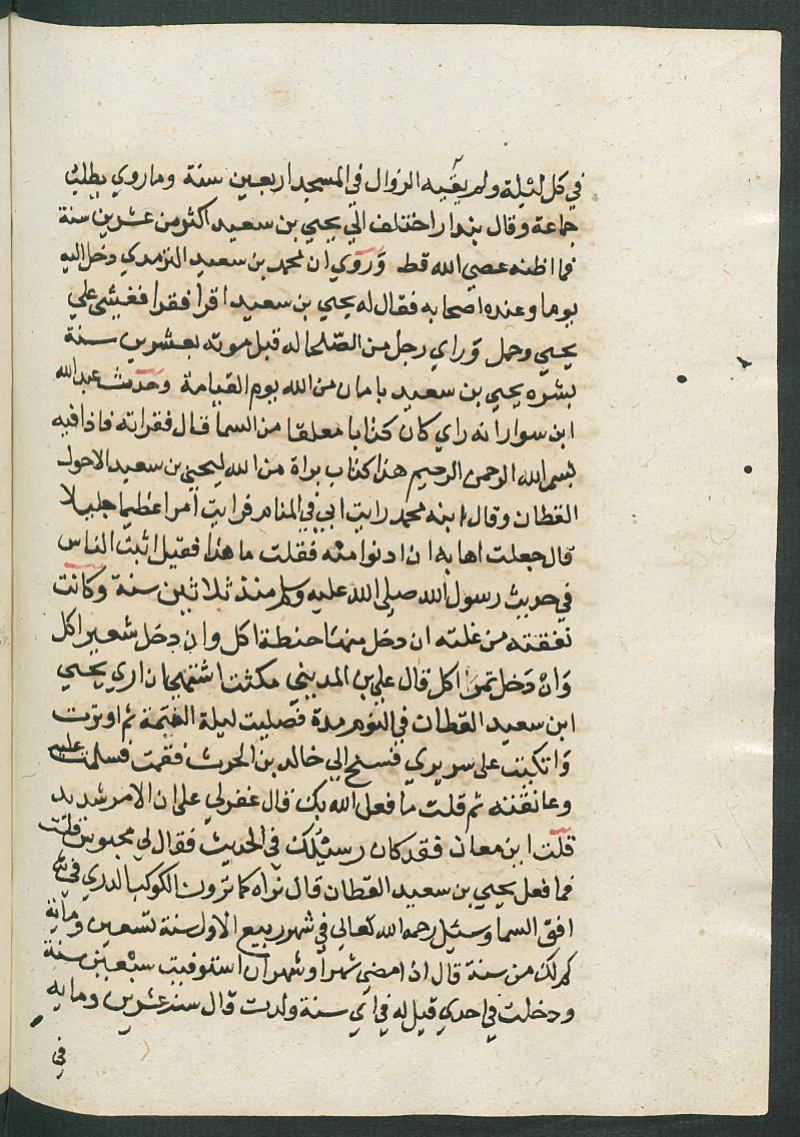 في كل ليلة ولم يفته الزوال في المسجد اربعين سنة وما روي يطلب
جماعة وقال بندار اختلف الي يحيي بن سعيد اكثر من عشرين سنة
فما اظنه عصي الله قط وروي ان محمد بن سعيد الترمدي دخل اليه
يوما وعنده اصحابه فقال له يحيي بن سعيد اقرا فقرا فغشي علي
يحيي وحمل وراي رجل من الصلحا له قبل موته بعشرين سنة
بشره يحيي بن سعيد بامان من الله يوم القيامة وحدث عبد الله
ابن سوار انه راي كان كتابا معلقا من السما قال فقراته فاذا فيه
بسم الله الرحمن الرحيم هذا كتاب براة من الله ليحيي بن سعيد الاحول
القطان وقال ابنه محمد رايت ابي في المنام فرايت امرا عظيما جليلا
قال جعلت اهابه ان ادنوا منه فقلت ما هذا فقيل اثبت الناس
في حديث رسول الله صلي الله عليه وسلم منذ ثلاثين سنة وكانت
نفقته من غلته ان دخل منها حنطة اكل وان دخل شعير اكل
وان دخل تمر اكل قال علي بن المديني مكثت اشتهي ان اري يحيي
ابن سعيد القطان في النوم مدة فصليت ليلة العتمة ثم اوترت
واتكيت علي سريري فسنح الي خالد بن الحرث فقمت فسلمت عليه
وعانقته ثم قلت ما فعل الله بك قال غفر لي علي ان الامر شديد
قلت ابن معاذ فقد كان رسيلك في الحديث فقال لي محبوس قلت
فما فعل يحيي بن سعيد القطان قال نراه كما ترون الكوكب الدري في
افق السما وسئل رحمه الله تعالي في شهر ربيع الاول سنة تسعين وماية
كم لك من سنة قال اذا مضي شهر او شهران استوفيت سبعين سنة
ودخلت في احدي قيل له في اي سنة ولدت قال سنة عشرين وماية
في